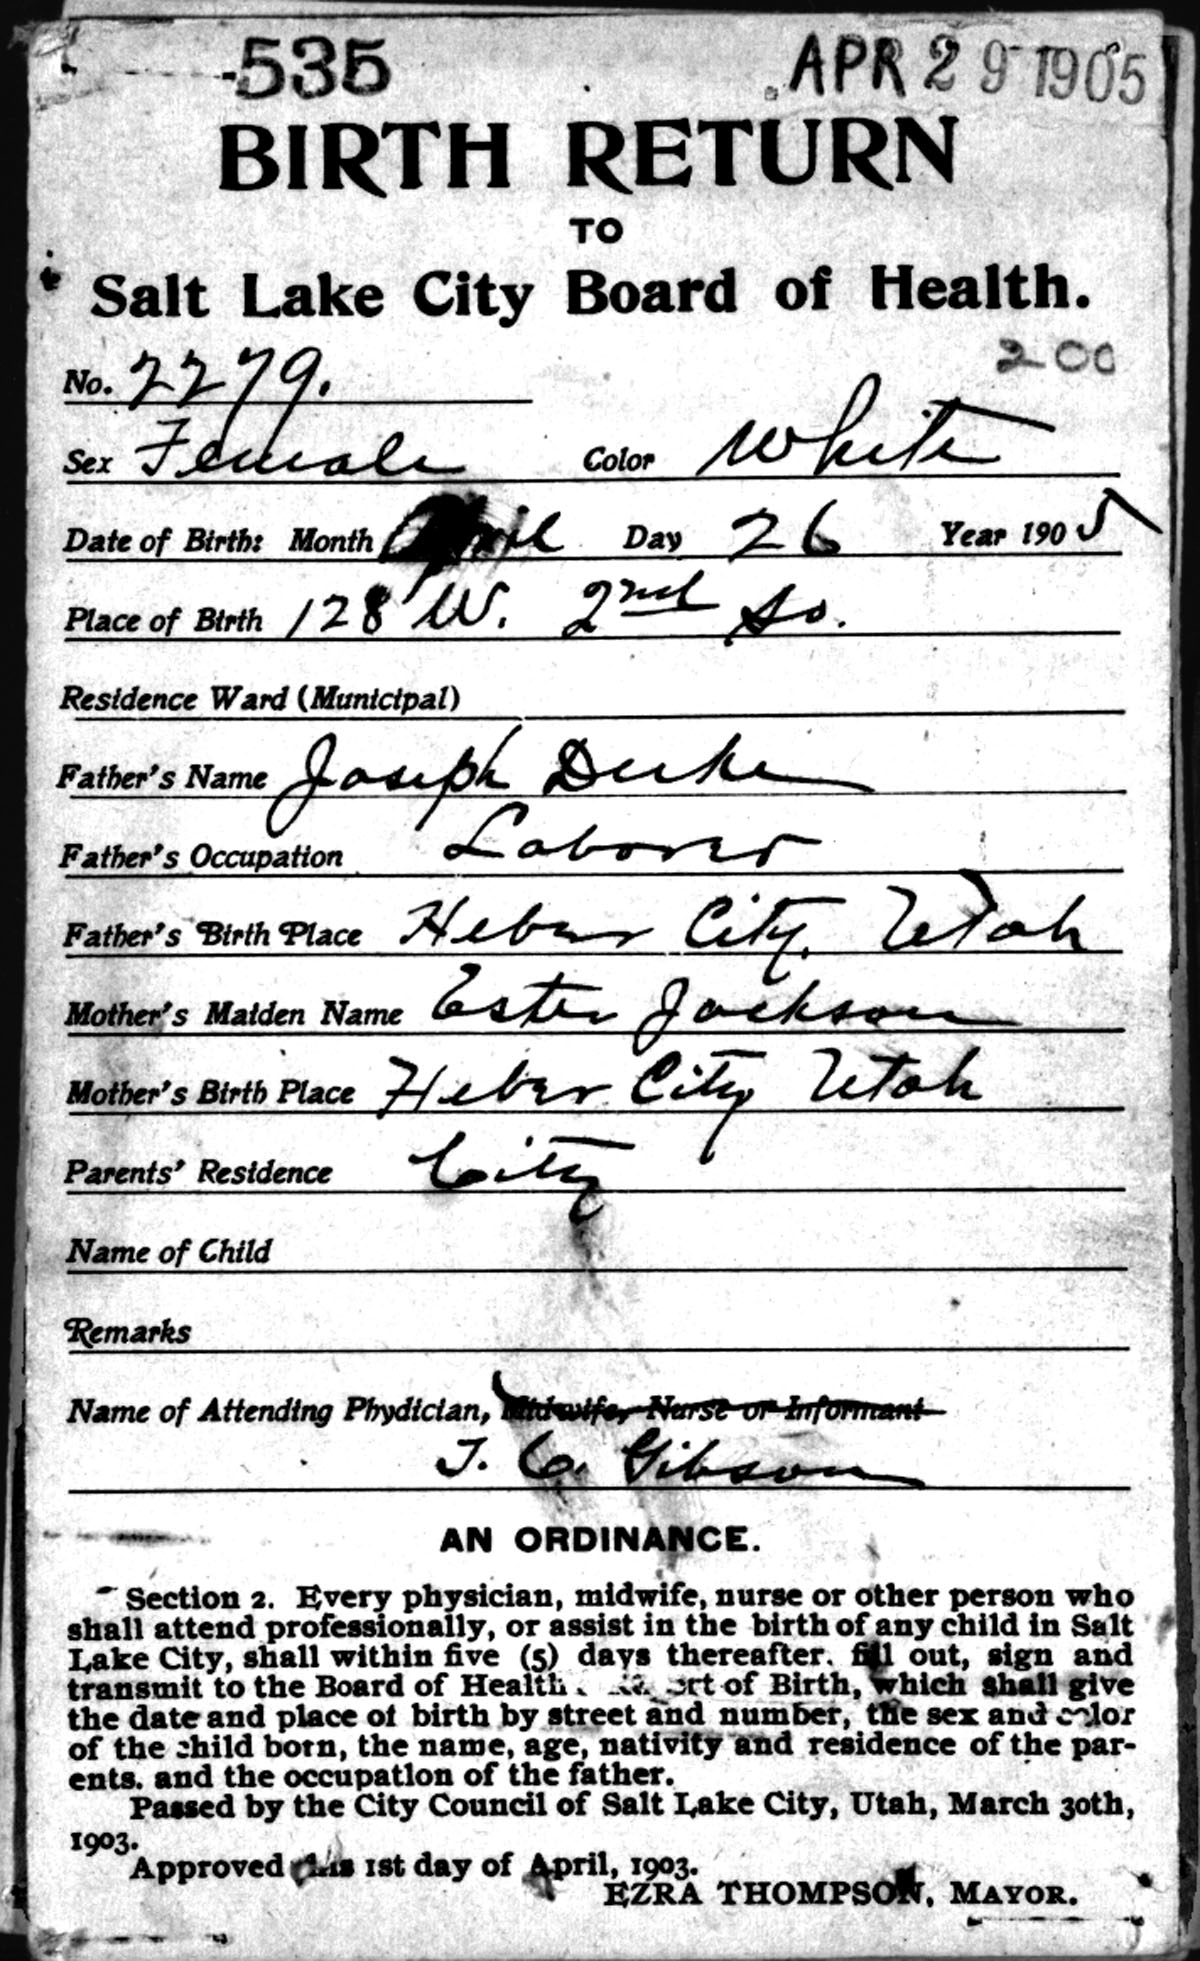 535 APR 29 1905
BIRTH RETURN
TO
Salt Lake City Board of Health.
200
No. 2279.
Sex Female Color White
Date of Birth: Month April Day 26 Year 1905
Place of Birth 128 W. 2nd So.
Residence Ward (Municipal)
Father's Name Joseph Duke
Father's Occupation Laborer
Father's Birth Place Heber City, Utah
Mother's Maiden Name Ester Jackson
Mother's Birth Place Heber City Utah
Parents' Residence City
Name of Child
Remarks
Name of Attending Phydician, Midwife, Nurse or Informant
T. C. Gibson
AN ORDINANCE.
Section 2. Every physician, midwife, nurse or other person who
shall attend professionally, or assist in the birth of any child in Salt
Lake City, shall within five (5) days thereafter. fill out, sign and
transmit to the Board of Health of Birth, which shall give
the date and place of birth by street and number, the sex and color
of the child born, the name, age, nativity and residence of the par-
ents. and the occupation of the father.
Passed by the City Council of Salt Lake City, Utah, March 30th,
1903.
Approved this 1st day of April, 1903.
EZRA THOMPSON, MAYOR.